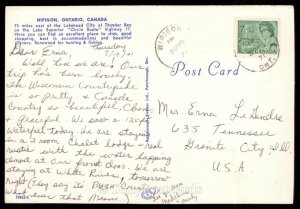 NIPIGON, ONTARIO, CANADA
75 miles east of the Lakehead City of Thunder Bay
on the Lake Superior "Circle Route" highway 17.
Here you can find an excellent place to stop, good
shopping, best in accommodations and beautiful
scenery. Renowned for hunting & fishing.
Tuesday
Dear Erna
Well here we are! Our
trip has been lovely.
The Wisconsin Countryside
was so pretty & Canada
Country so beautiful, Clean
& peaceful. We saw a
yesterday today. We are staying
in a 2 room Chalet lodge - real
rustic with the water lapping
almost at our front door. We are
staying at White River tomorrow
night (they say its BUSH Country
whatever that means)
NIPIGON
ONT.
Mrs Erna Le Andre
635 Tennessee
Granite City, Ill.
U.S.A.